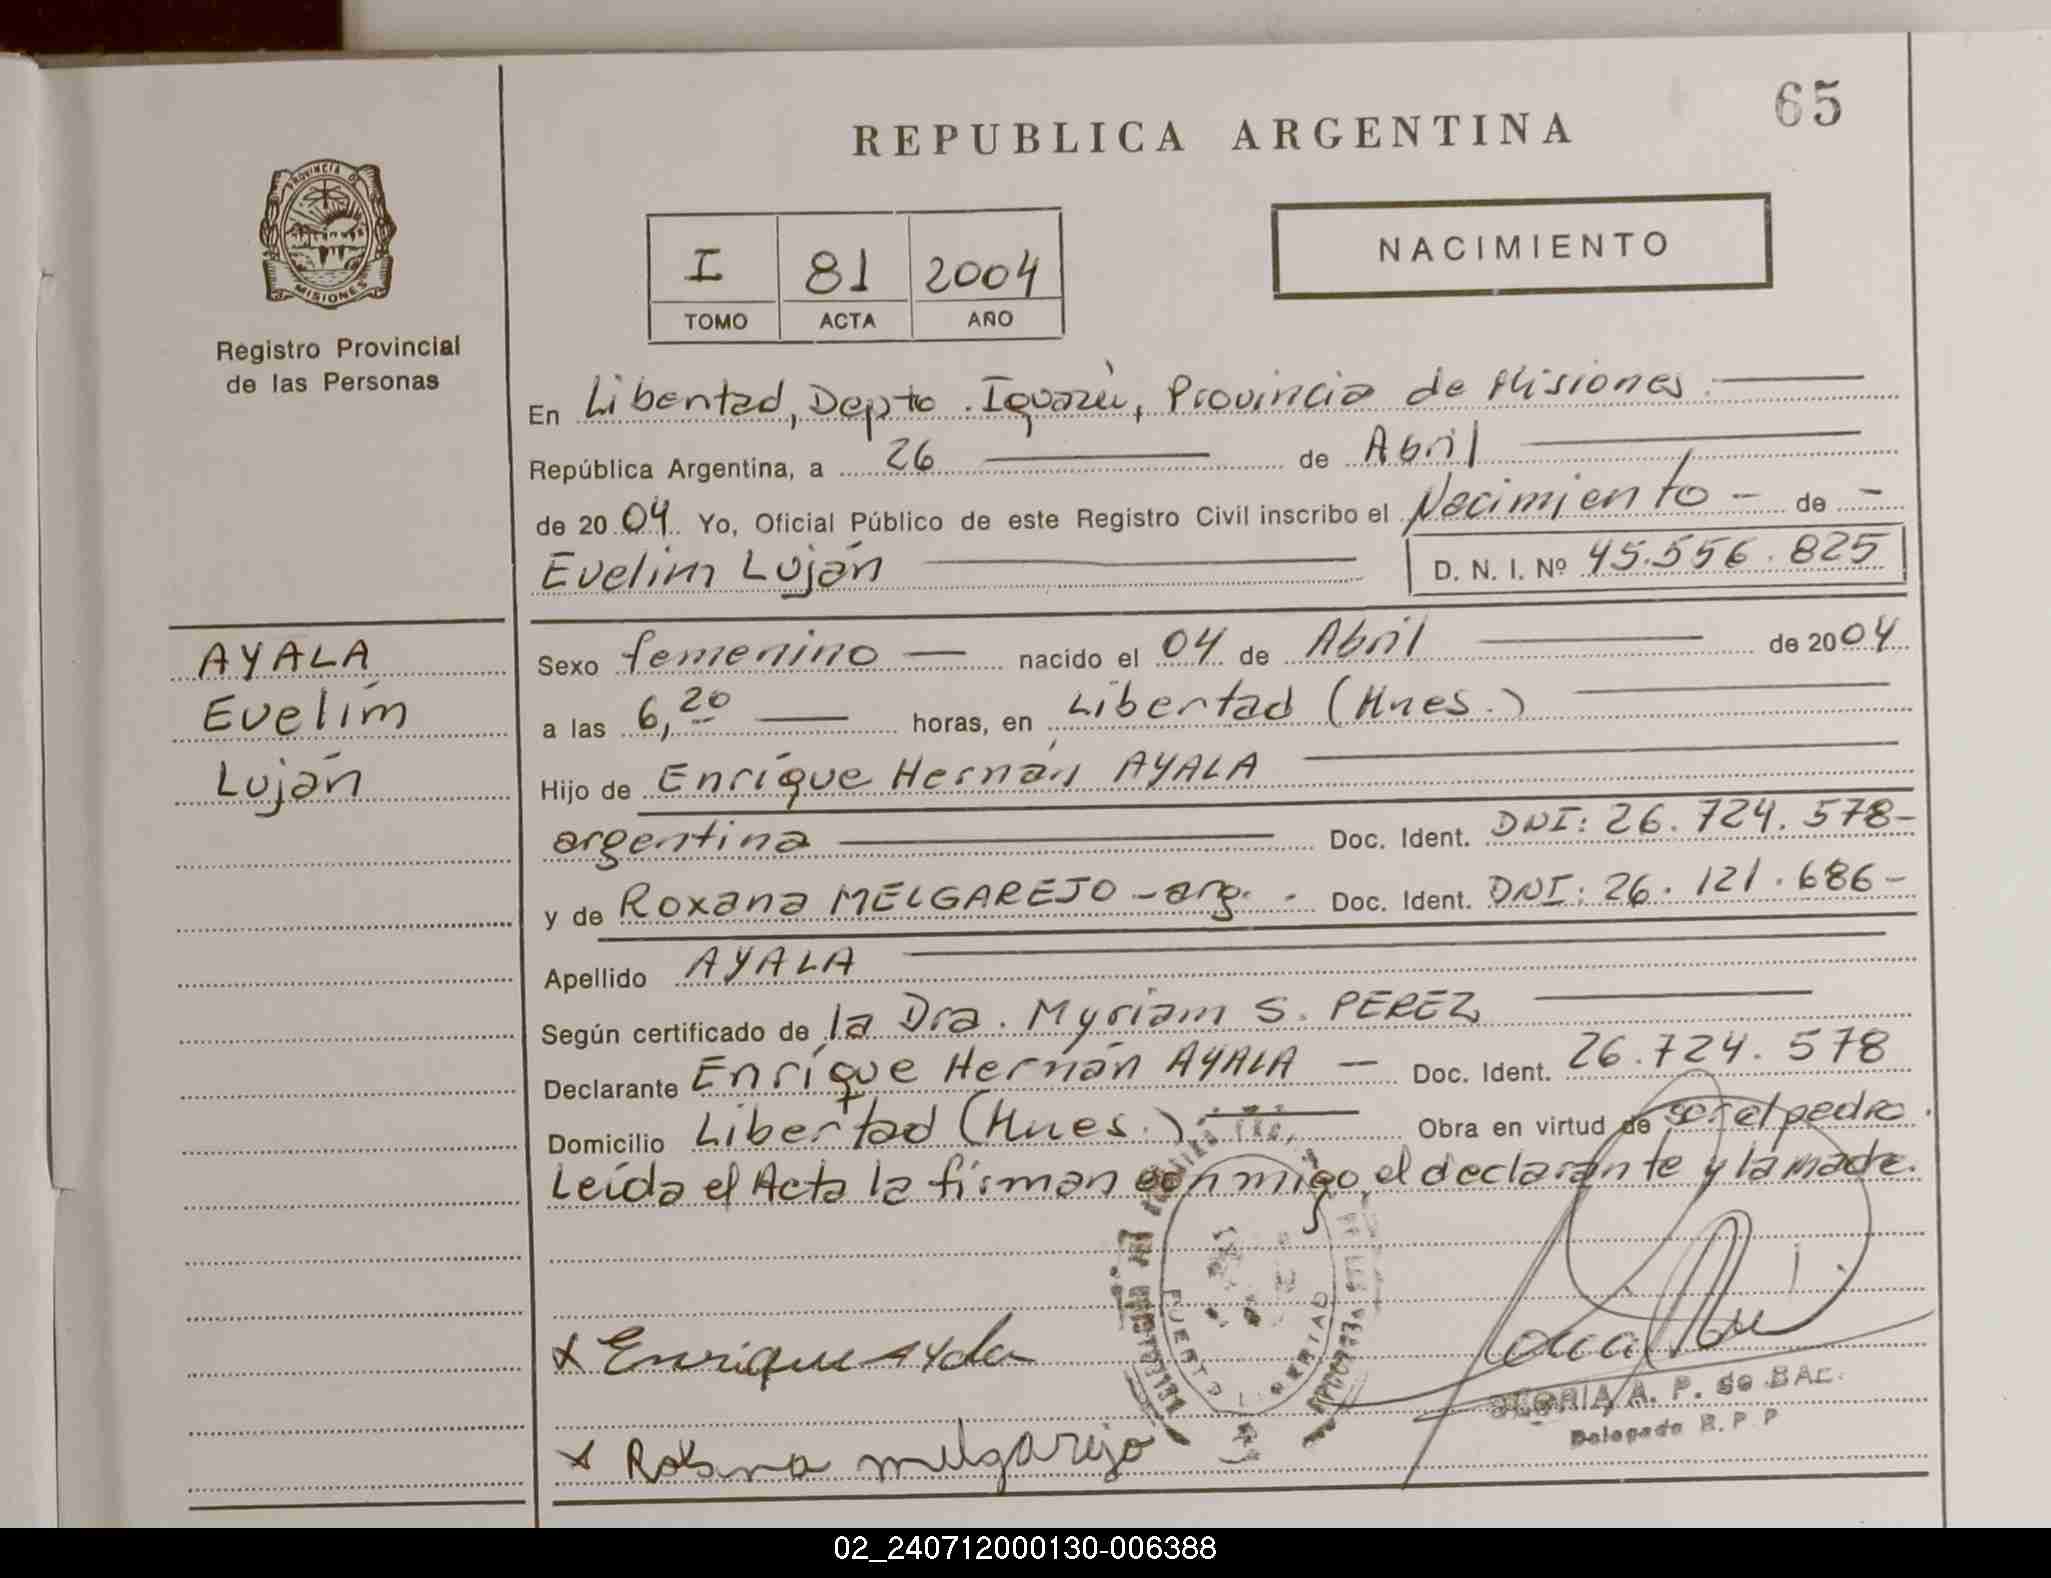 65
REPUBLICA ARGENTINA
PROVINCIA DE
MISIONES
Registro Provincial
de las Personas
NACIMIENTO
I 81 2004
TOMO ACTA AÑO
En Libertad, Depto. Iguazú, Provincia de Misiones.
República Argentina, a 26 de Abril
de 2004 Yo, Oficial Público de este Registro Civil inscribo el Nacimiento - de -
Evelim Luján D. N. I. Nº 45.556.825
AYALA
Evelim
Luján
Sexo femenino nacido el 04 de Abril de 2004
a las 6,20 horas, en Libertad (Mnes.)
Hijo de Enrique Hernán AYALA
argentina Doc. Ident. DNI: 26.724.578-
y de Roxana MELGAREJO - arg. - Doc. Ident. DNI: 26.121.686-
Apellido AYALA
Según certificado de la Dra. Myriam S. PEREZ
Declarante Enrique Hernán AYALA - Doc. Ident. 26.724.578
Domicilio Libertad (Mnes.) Obra en virtud de ser el padre.
Leída el Acta la firman conmigo, el declarante y la madre.
PUERTO LIBERTAD
x Enrique Ayala
GLORIA A. P. de BAE.
Delegada R. P. P
x Roxana melgarejo
02_240712000130-006388